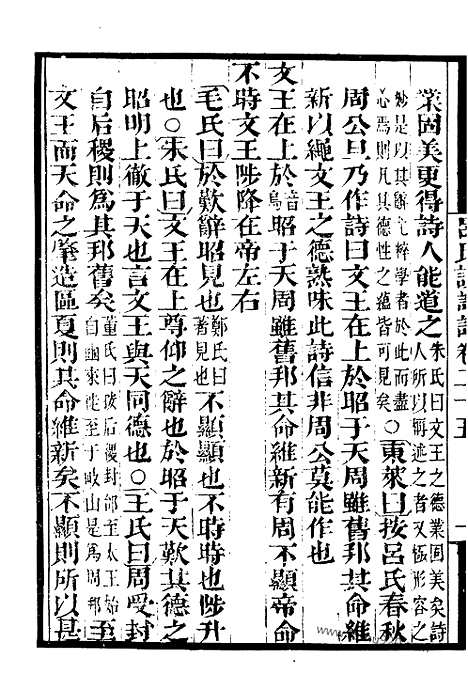 業固美更得詩人能道之朱氏曰文王之德業固美矣詩人所以稱述之者又極形容之
妙是以其辭粹學者於此而盡心焉則凡其德性之蘊皆可見矣○東萊曰按呂氏春秋
周公旦乃作詩曰文王在上於昭于天周雖舊邦其命維
新以繩文王之德熟味此詩信非周公莫能作也
文王在上於音烏昭于天周雖舊邦其命維新有周不顯帝命
不時文王陟降在帝左右
毛氏曰於歎辭昭見也鄭氏曰著見也不顯顯也不時時也陟升
也○朱氏曰文王在上尊仰之辭也於昭于天歎其德之
昭明上徹于天也言文王與天同德也○王氏曰周受封
自后稷則為其邦舊矣董氏曰后稷封邰至太王始自豳來徙至于岐山是為周邦至
文王而天命之肇造區夏則其命維新矣不顯則所以甚